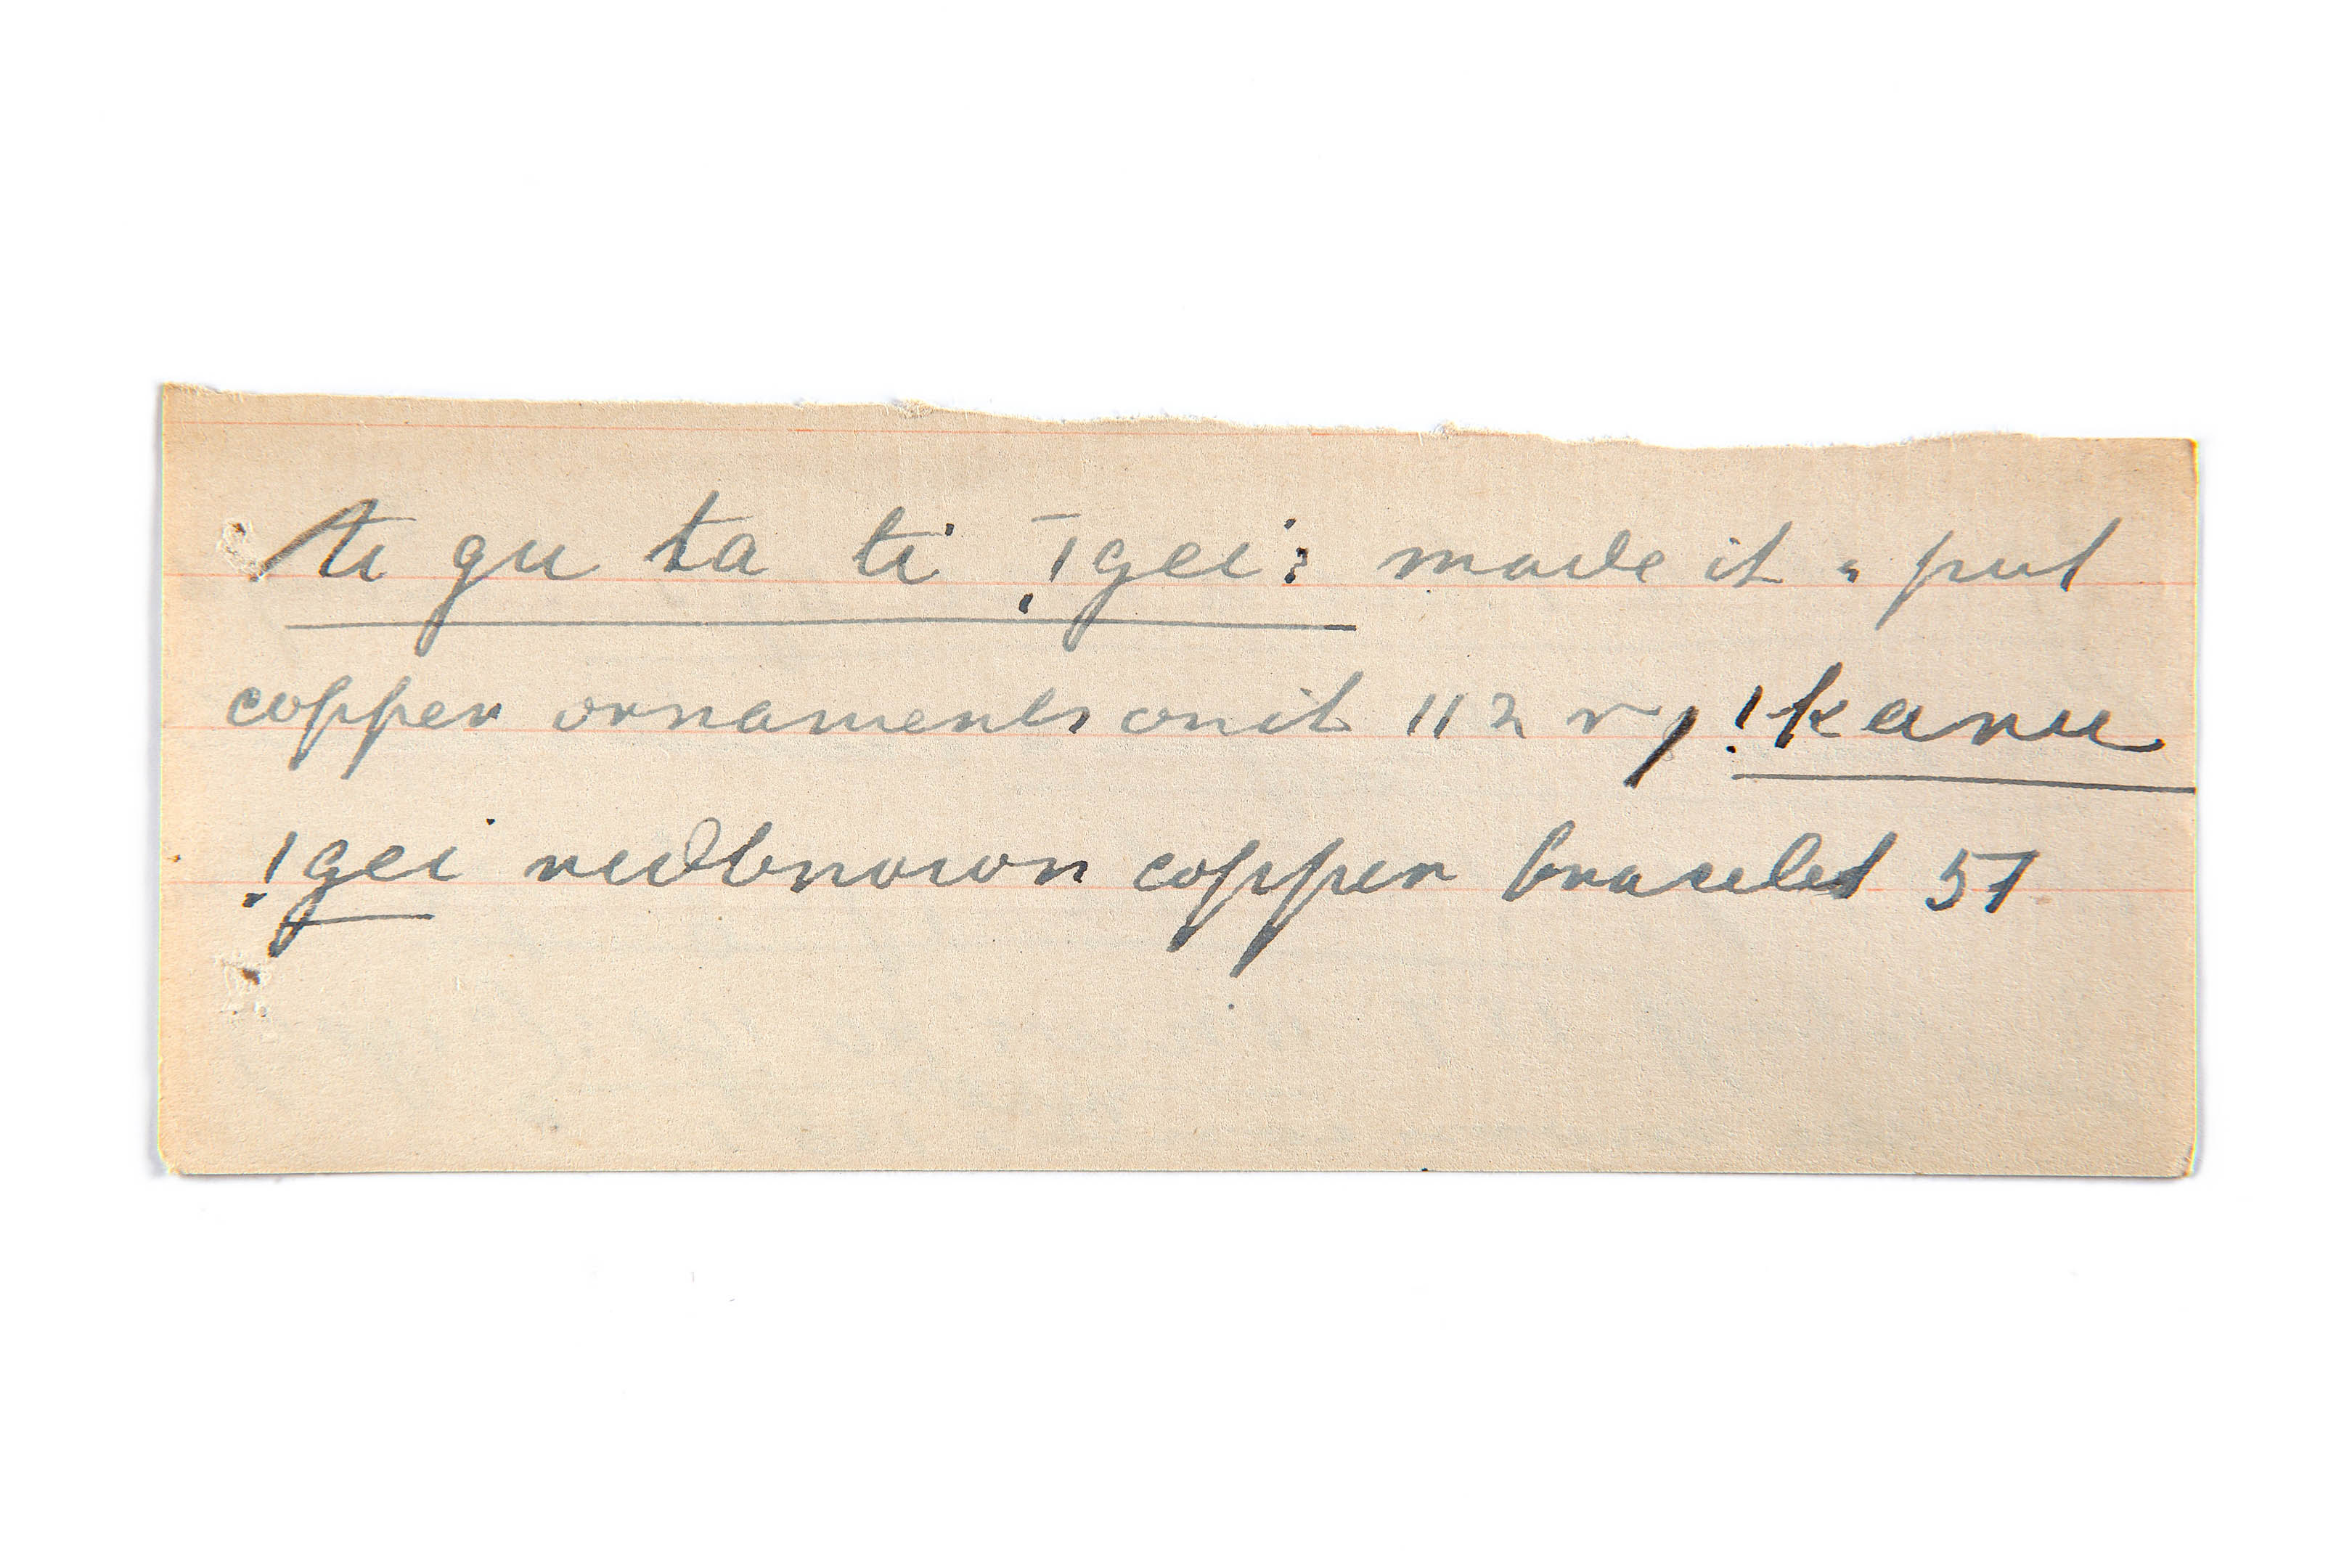 ti gu ta ti !gei: made it & put
copper ornaments on it 112 r !karu
!gei redbrown copper bracelet 57